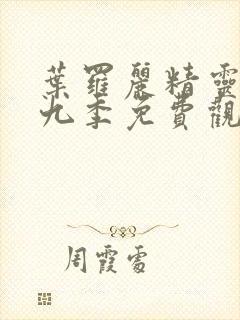 葉羅麗精靈
九季免費觀
周霞雩